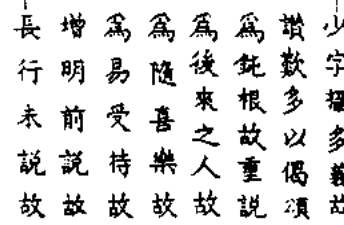 少字攝多義故
讚歎多以偈頌
為鈍根故重説
為後來之人故
為隨喜樂故
為易受持故
増明前説故
長行未説故